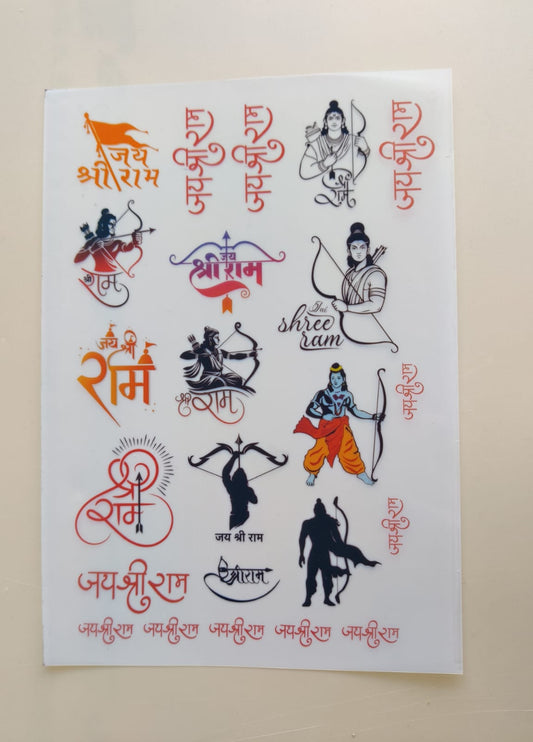 जय
श्री राम
जय श्री राम
जय श्री राम
श्री
राम
जय श्री राम
श्री
राम
जय
श्री राम
Jai
shree
ram
जय श्री
राम
श्री
राम
जय श्री राम
श्री
राम
जय श्री राम
जय श्री राम
जय श्री राम
श्रीराम
जय श्री राम
जय श्री राम
जय श्री राम
जय श्री राम
जय श्री राम